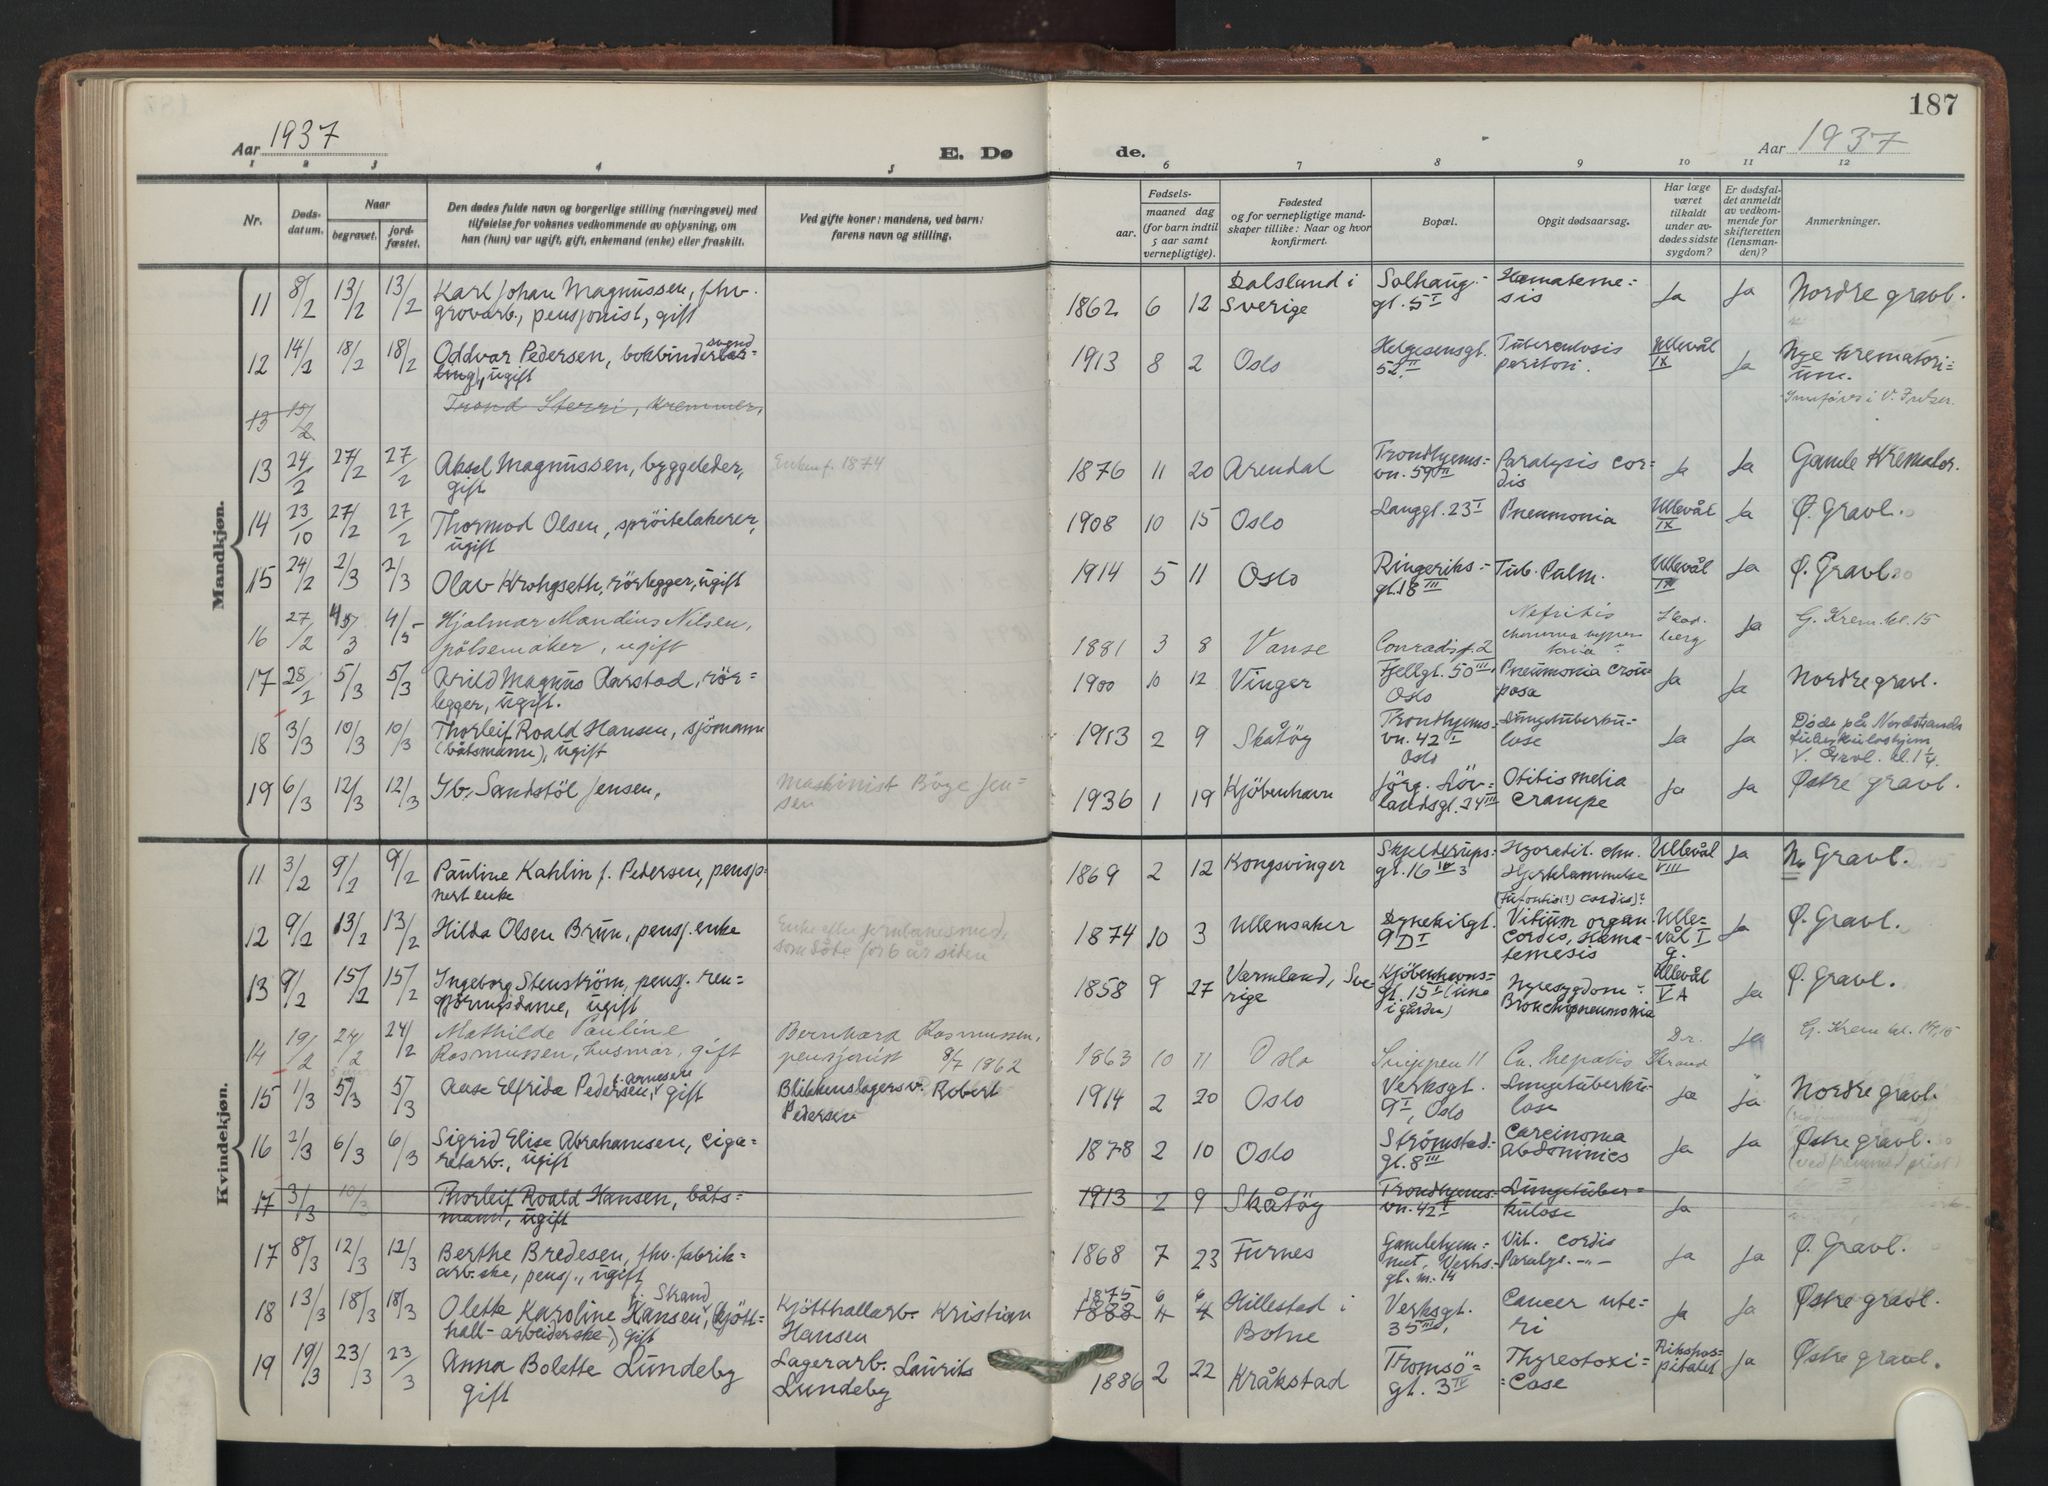 187
Aar 1937
E. Dø
de.
Aar 1937
1 2 3 4 5 6 7 8 9 10 11 12
Nr.
Døds-
datum.
Naar
begravet.
jord-
fæstet.
Den dødes fulde navn og borgerlige stilling (næringsvei) med
tilføielse for voksnes vedkommende av oplysning, om
han (hun) var ugift, gift, enkemand (enke) eller fraskilt.
Ved gifte koner: mandens, ved barn:
farens navn og stilling.
Fødsels-
aar.
maaned dag
(for barn indtil
5 aar samt
vernepligtige).
Fødested
og for vernepligtige mand-
skaper tillike: Naar og hvor
konfirmert.
Bopæl.
Opgit dødsaarsag.
Har læge
været
tilkaldt
under av-
dødes sidste
sygdom?
Er dødsfal-
det anmeldt
av vedkom-
mende for
skifteretten
(lensman-
den)?
Anmerkninger.
Mandkjøn.
11 8/2 13/2 13/2 Karl Johan Magnussen, fhv.
grovarb., pensjonist, gift
1862 6 12 Dalsland i
Sverige
Solhaug-
gl. 5 I
Hæmateme-
sis
Ja Ja Nordre gravl.
12 14/2 18/2 18/2 Oddvar Pedersen, bokbinder
svend
ling, ugift
1913 8 2 Oslo
Helgesensgt.
52 II
Tuberculosis
peritoni.
Ullevål
IX
Ja
Nye Krematori-
um.
13 15/2 Trond Sterri, Kremmer,
13 24/2 27/2 27/2 Aksel Magnussen, byggeleder,
gift
Enken f. 1874
1876 11 20 Arendal
Trondhjems-
vn. 59 II
Paralysis cor-
dis
Ja Ja Gamle Kremator.
14 23/10 27/2 27/2 Thormod Olsen, sprøitelakerer,
ugift
1908 10 15 Oslo Langgt. 23 I Pneumonia
Ullevål
IX
Ja Ø. Gravl.
15 24/2 2/3 2/3 Olav Krohgseth, rørlegger, ugift
1914 5 11 Oslo
Ringeriks-
gt. 18 III
Tub. Pulm.
Ullevål
Ja Ø. Gravl.
16 27/2 4/3 Hjalmar Mandius Nilsen,
pølsemaker, ugift
1881 3 8 Vanse Conradisg. 2
Nefritis
Ja G. Krem. kl. 15
17 28/2 5/3 5/3 Arild Magnus Aarstad, rør-
legger, ugift.
1900 10 12 Vinger
Fjellgt. 50 III,
Oslo
Pneumonia crou-
posa
Ja Ja Nordre gravl.
18 3/3 10/3 10/3 Thorleif Roald Hansen, sjømann
(båtsmann), ugift
1913 2 9 Skåtøy
Trondhjems-
vn. 42 I
Oslo
Lungetuberku-
lose
Ja Ja
Døde på Nordstrands
tuberkuloshjem
V. Gravl. kl. 1 1/4.
19 6/3 12/3 12/3 Ib. Sandstøl Jensen,
Maskinist Böge Jen-
sen
1936 1 19 Kjøbenhavn
Jørg. Løv-
landsgt. 24 III
Otitis media
Crampe
Ja Ja Østre gravl.
Kvindekjøn.
11 3/2 9/2 9/2 Pauline Kahlin f. Pedersen, pensjo-
nert enke
1869 2 12 Kongsvinger
Skjelderups-
gt. 16 IV
Hjertelammelse
Ullevål
VIII
Ja N. Gravl.
12 9/2 13/2 13/2 Hilda Olsen Brun, pensj. enke
Enke efter jernbanesmed,
som døde for 6 år siden
1874 10 3 Ullensaker
Dynekilgt.
9 D I
Vitium organ.
cordis, Hæma-
temesis
Ulle-
vål I
g.
Ja Ø. Gravl.
13 9/2 15/2 15/2 Ingeborg Stenström, pensj. ren-
gjöringsdame, ugift
1858 9 27 Värmland, Sve
rige
Kjøbenhavns-
gt. 15 I (inne
i gården)
Nyresygdom
Bronchipneumonia
Ullevål
V A
Ja Ø. Gravl.
14 19/2 24/2 24/2 Mathilde Pauline
Rasmussen, husmor, gift
Bernhard Rasmussen,
pensjonist 8/7 1862
1863 10 11 Oslo Snippen 11 Ca. hepatis
Dr.
Strand
Ja G. Krem kl. 14,15
15 1/3 5/3 5/3 Aase Elfrida Pedersen, f. Arnesen gift
Blikkenslagersv. Robert
Pedersen
1914 2 20 Oslo
Verksgt.
9 I, Oslo
Lungetuberku-
lose
Ja Ja Nordre gravl.
16 2/3 6/3 6/3 Sigrid Elise Abrahamsen, ciga-
retarb., ugift
1878 2 10 Oslo
Strømstad-
gt. 8 III
Carcinoma
abdominis
Ja Ja Østre gravl.
(ved fremmed prest)
17 3/3 10/3 Thorleif Roald Hansen, båts-
mann, ugift
1913 2 9 Skåtøy
Trondhjems-
vn. 42 I
Lungetuber-
kulose
Ja
17 8/3 12/3 12/3 Berthe Bredesen, fhv. fabrik-
arb.ske, pensj., ugift
1868 7 23 Furnes
Gamlehjem-
met, Verks-
gt. m. 14
Vit. cordis
Paralys. -"-
Ja Ja Ø. Gravl.
18 13/3 18/3 18/3 Olette Karoline Hansen, f. Strand (kjött-
hall-arbeiderske) gift
Kjötthallarb. Kristian
Hansen
1875 6 6
1888 4 4 Hillestad i
Botne
Verksgt.
35 III,
Cancer ute-
ri
Ja Ja Østre gravl.
19 19/3 23/3 23/3 Anna Bolette Lundeby
gift
Lagerarb. Laurits
Lundeby
1886 2 22 Kråkstad
Tromsö-
gt. 3 IV
Thyreotoxi-
cose
Rikshos-
pitalet
Ja Østre gravl.